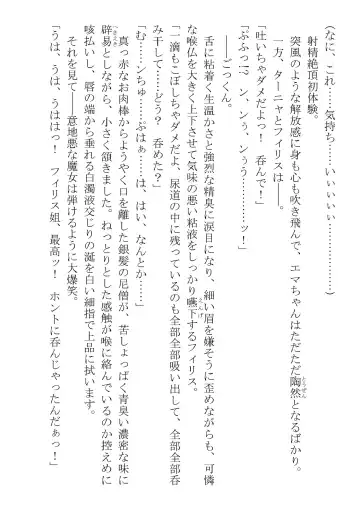 (なに、これ……気持ち……いいぃぃぃ……………………)
射精絶頂初体験。
突風のような解放感に身も心も吹き飛んで、エマちゃんはただただ陶然となるばかり。
一方、ターニャとフィリスは――。
「吐いちゃダメだよっ! 呑んで!」
「ぶふっ!? ン、ンぅ、ンぅう………ッ!」
――ごっくん。
舌に粘着く生温かさと強烈な精臭に涙目になり、細い眉を嫌そうに歪めながらも、可憐
な喉を大きく上下させて気味の悪い粘液をしっかり嚥下するフィリス。
「一滴もこぼしちゃダメだよ、尿道の中に残っているのも全部全部吸い出して、全部全部呑
み干して……どう? 呑めた?」
「む……ンちゅ……ぷはぁ……は、はい、なんとか……」
真っ赤なお肉棒からようやく口を離した銀髪の尼僧が、苦しょっぱく青臭い濃密な味に
辟易としながら、小さく頷きました。ねっとりとした感触が喉に絡んでいるのか控えめに
咳払いし、唇の端から垂れる白濁液交じりの涎を白い細指で上品に拭います。
それを見て――意地悪な魔女は弾けるように大爆笑。
「うは、うは、うははっ! フィリス姐、最高ッ! ホントに呑んじゃったんだぁっ!」